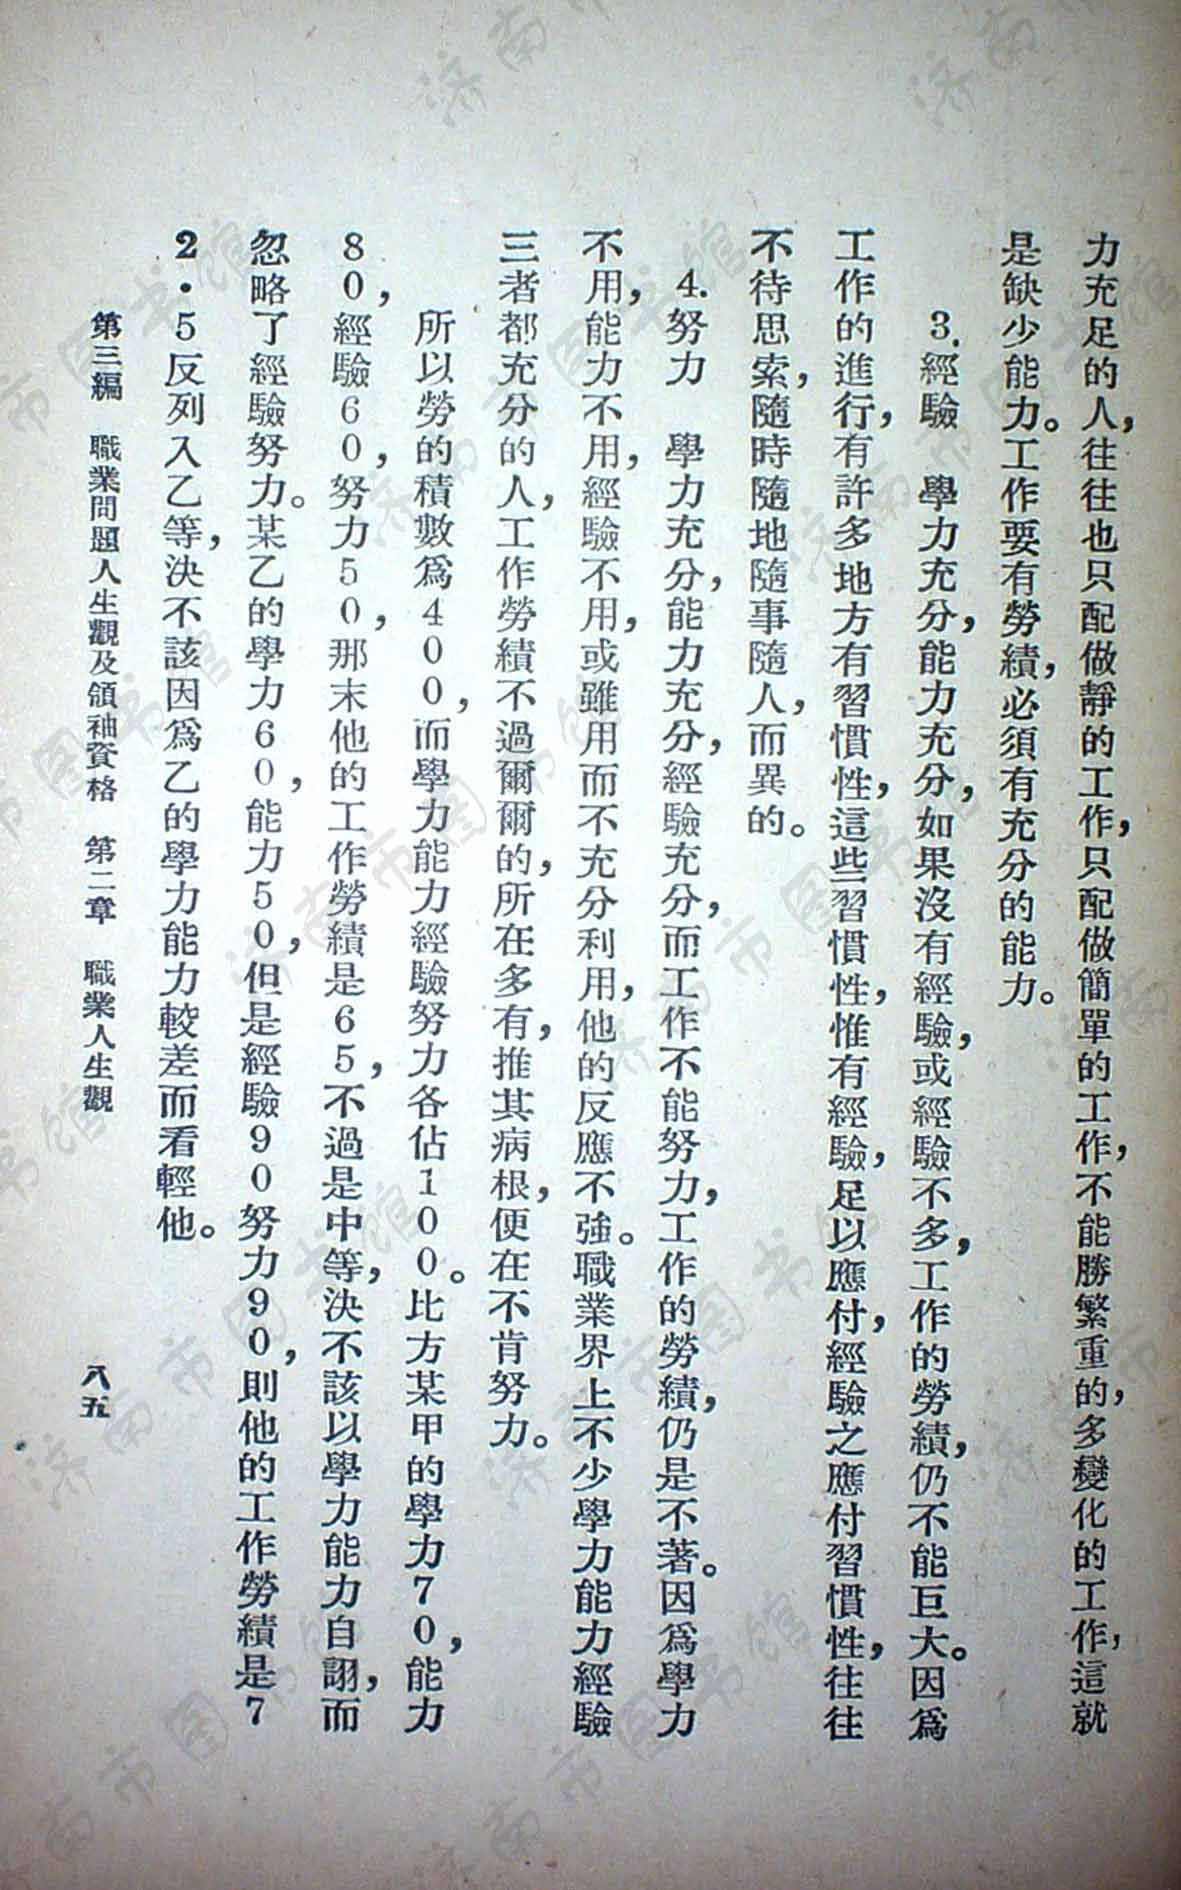 力充足的人，往往也只配做靜的工作，只配做簡單的工作，不能勝繁重的，多變化的工作，這就
是缺少能力。工作要有勞績，必須有充分的能力。
3.經驗　學力充分，能力充分，如果沒有經驗，或經驗不多，工作的勞績，仍不能巨大。因爲
工作的進行，有許多地方有習慣性，這些習慣性，惟有經驗，足以應付，經驗之應付習慣性，往往
不待思索，隨時隨地隨事隨人，而異的。
4.努力　學力充分，能力充分，經驗充分，而工作不能努力，工作的勞績，仍是不著。因爲學力
不用，能力不用，經驗不用，或雖用而不充分利用，他的反應不強。職業界上不少學力能力經驗
三者都充分的人，工作勞績不過爾爾的，所在多有，推其病根，便在不肯努力。
所以勞的積數爲400，而學力能力經驗努力各佔100。比方某甲的學力70，能力
80，經驗60，努力50，那末他的工作勞績是65，不過是中等，決不該以學力能力自詡，而
忽略了經驗努力。某乙的學力60，能力50，但是經驗90努力90，則他的工作勞績是7
2．5反列入乙等，決不該因爲乙的學力能力較差而看輕他。
第三編　職業問題人生觀及領袖資格　第二章　職業人生觀
八五
济南市图书馆